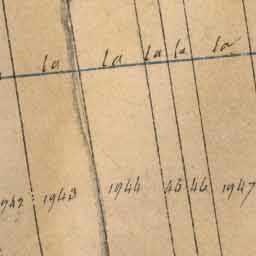 la la la la la
1942 1943 1944 45 46 1947